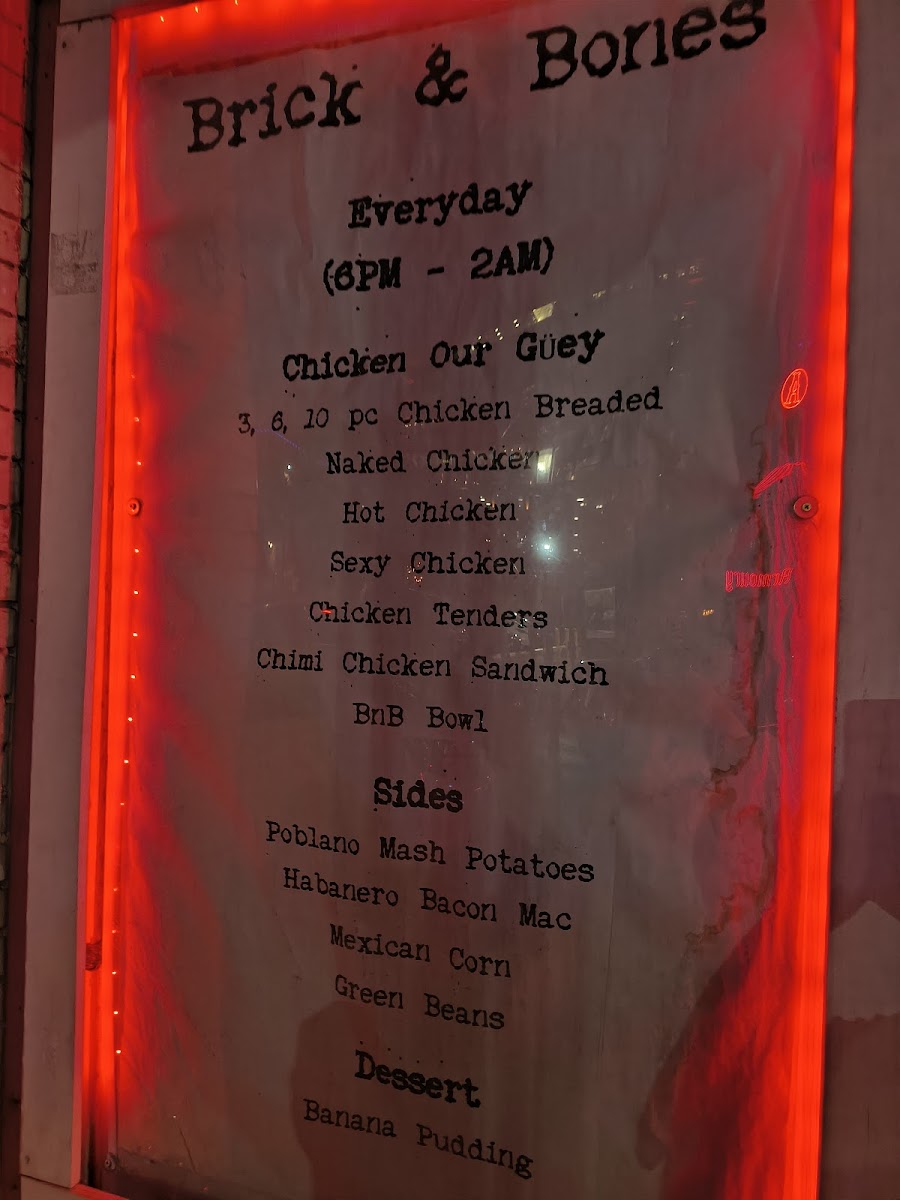 Brick & Bones
Everyday
(6PM - 2AM)
Chicken Our Güey
3, 6, 10 pc Chicken Breaded
Naked Chicken
Hot Chicken
Sexy Chicken
Chicken Tenders
Chimi Chicken Sandwich
BnB Bowl
Sides
Poblano Mash Potatoes
Habanero Bacon Mac
Mexican Corn
Green Beans
Dessert
Banana Pudding